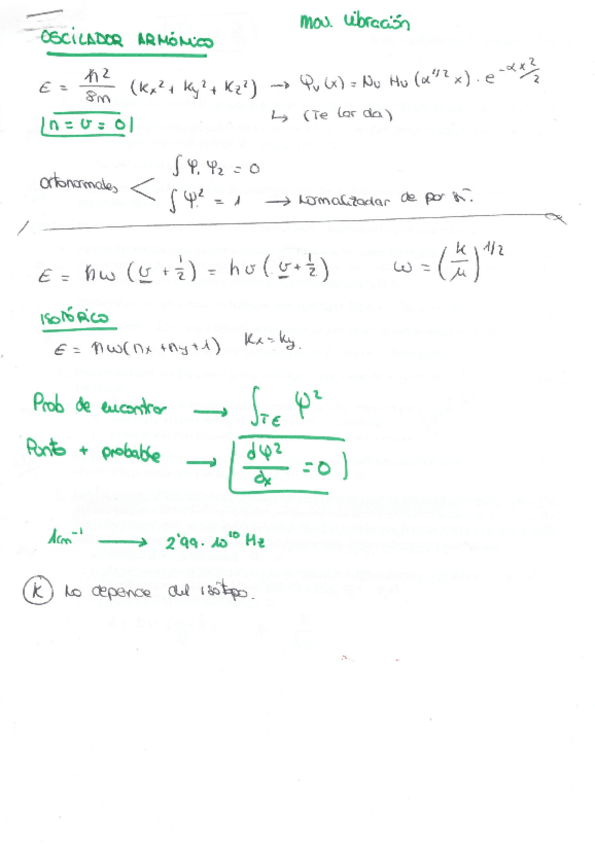 mov. vibración
OSCILADOR ARMÓNICO
E = ħ²/8m (kx² + ky² + kz²) → φv(x) = Nv Hv (α^1/2 x) · e^-αx²/2
|n = v = 0|
↳ (Te los da)
ortonormales < ∫φ₁ φ₂ = 0
∫φ² = 1 → Normalizadas de por sí.
E = ħω (v + 1/2) = hν (v + 1/2) ω = (k/μ)^1/2
ISOTÓPICO
E = ħω(nx + ny + 1) kx = ky.
Prob de encontrar → ∫TE φ²
Punto + probable → |dφ²/dx = 0|
1cm⁻¹ → 2'99·10¹⁰ Hz
(k) No depende del isótopo.